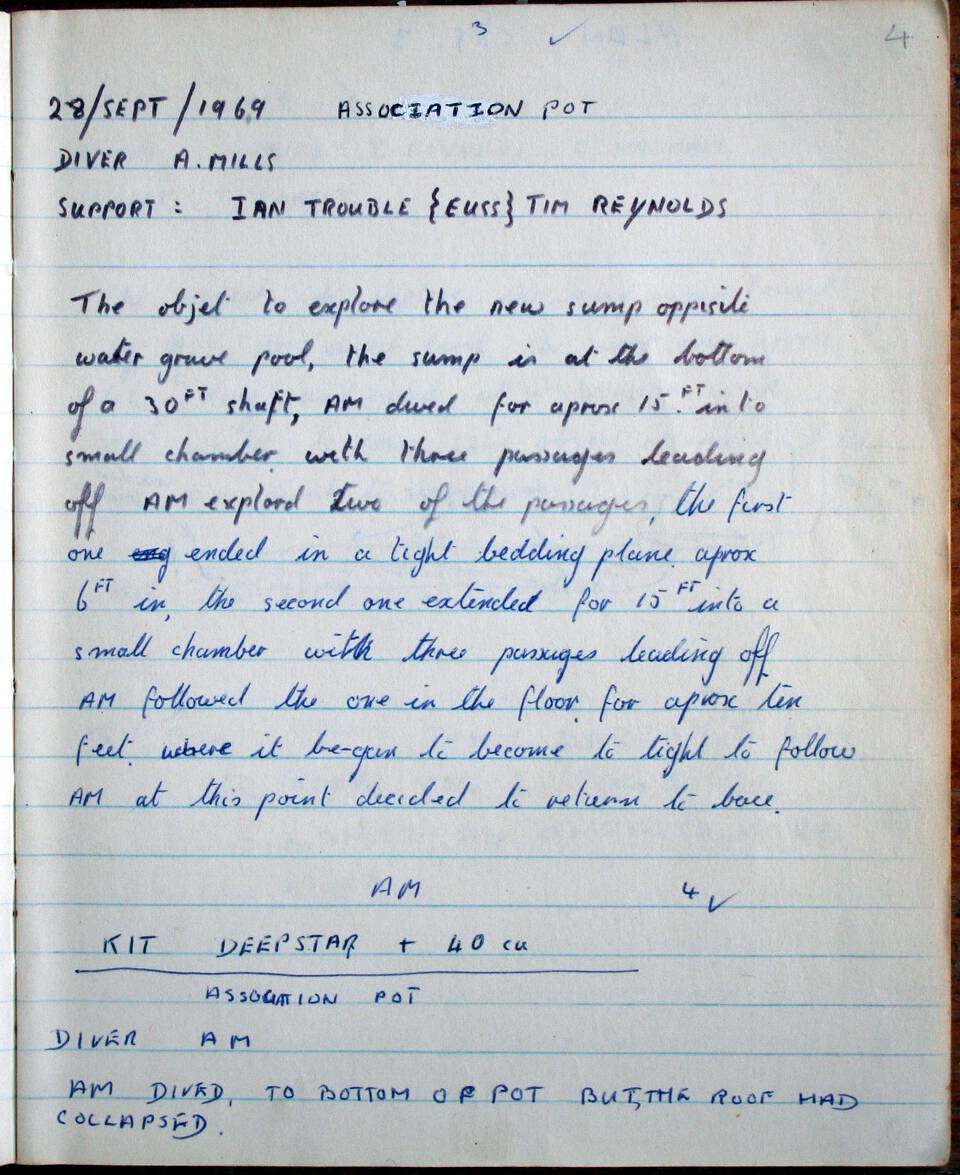 3 ✓ 4
28/SEPT/1969 ASSOCIATION POT
DIVER A. MILLS
SUPPORT : IAN TROUBLE {EUSS} TIM REYNOLDS
The objet to explore the new sump oppisite
water grave pool, the sump is at the bottom
of a 30FT shaft, AM dived for aprox 15.FT into
small chamber with three passages leading
off AM explord two of the passages, the first
one eng ended in a tight bedding plane. aprox
6FT in, the second one extended for 15FT into a
small chamber with three passages leading off
AM followed the one in the floor. for aprox ten
feet. where it be-gan to become to tight to follow
AM at this point decided to return to base.
AM 4 ✓
KIT DEEPSTAR + 40 cu
ASSOCIATION POT
DIVER AM
AM DIVED, TO BOTTOM OF POT BUT, THE ROOF HAD
COLLAPSED.